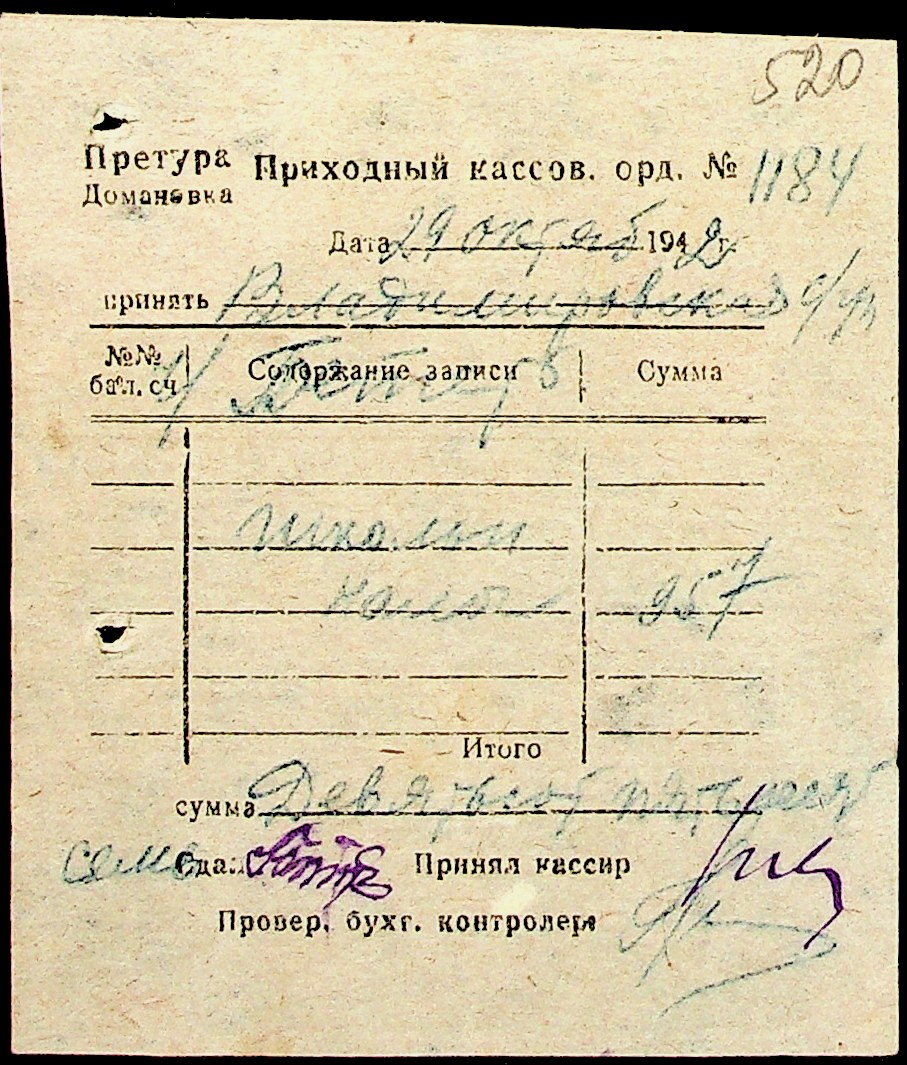 520
Претура Приходный кассов. орд. № 1184
Домановка
Дата 29 октяб 1942 г.
принять Владимировская с/уп
№№ бал. сч. Содержание записи Сумма
ч/
школьн
налог 957
Итого
сумма Девятьсот пятьдесят
семь Сдал Принял кассир
Провер. бухг. контролер